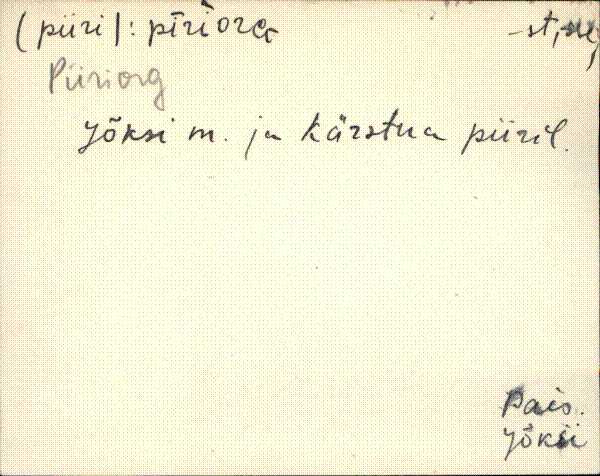 (piiri): pīrìorɢ -st, -se,
Piiriorg
Jõksi m. ja Kärstna piiril.
Pais.
Jõksi